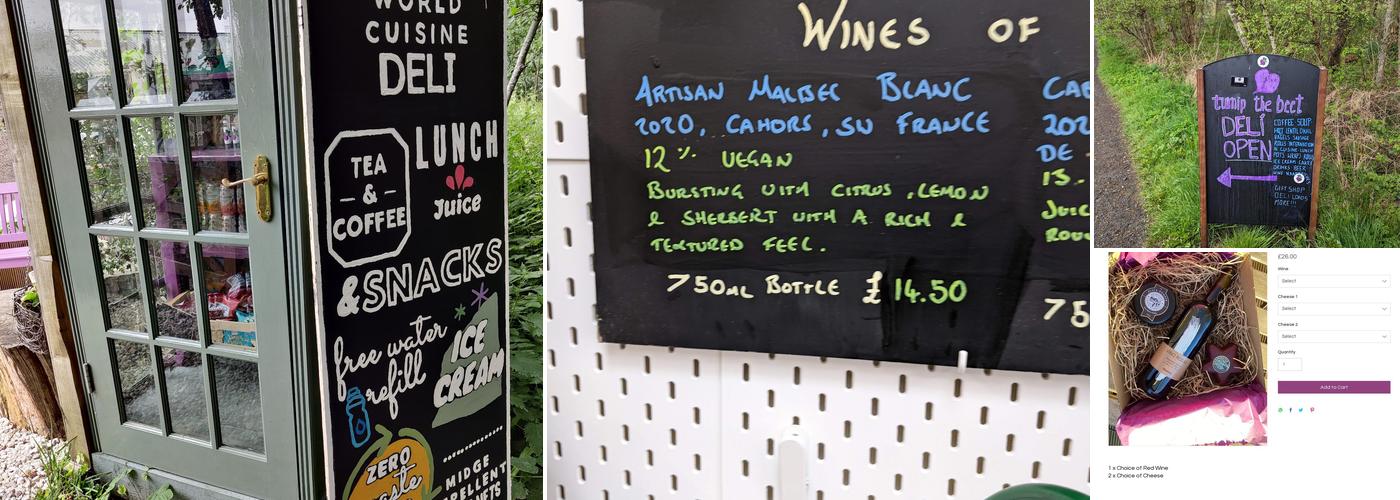 WORLD
CUISINE
DELI
TEA
&
COFFEE
LUNCH
Juice
& SNACKS
free water
refill
ICE
CREAM
ZERO
waste
MIDGE
WINES OF
ARTISAN MALBEC BLANC
2020, CAHORS, SW FRANCE
12% VEGAN
BURSTING WITH CITRUS, LEMON
& SHERBERT WITH A RICH &
TEXTURED FEEL.
750ML BOTTLE £14.50
CAB
202
DE
13.
JUIC
ROU
75
turnip the beet
DELI
OPEN
COFFEE SOUP
GIFT SHOP
DELI LOADS
MORE!!!
£26.00
Wine
Select
Cheese 1
Select
Cheese 2
Select
Quantity
1
Add to Cart
1 x Choice of Red Wine
2 x Choice of Cheese